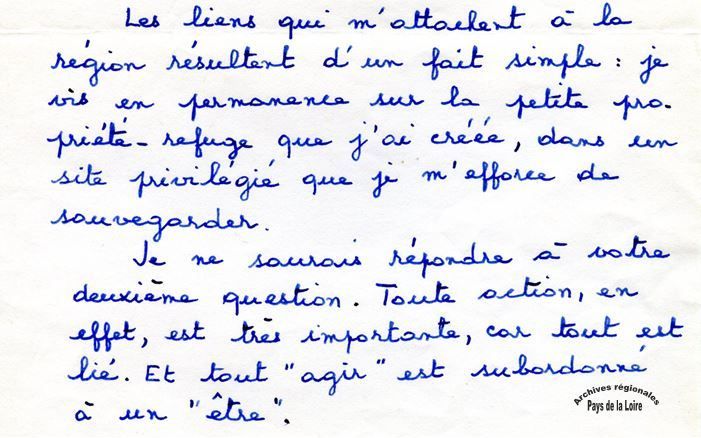 Les liens qui m'attachent à la
région résultent d'un fait simple : je
vis en permanence sur la petite pro-
priété-refuge que j'ai créée, dans un
site privilégié que je m'efforce de
sauvegarder.
Je ne saurais répondre à votre
deuxième question. Toute action, en
effet, est très importante, car tout est
lié. Et tout "agir" est subordonné
à un "être".
Archives régionales
Pays de la Loire